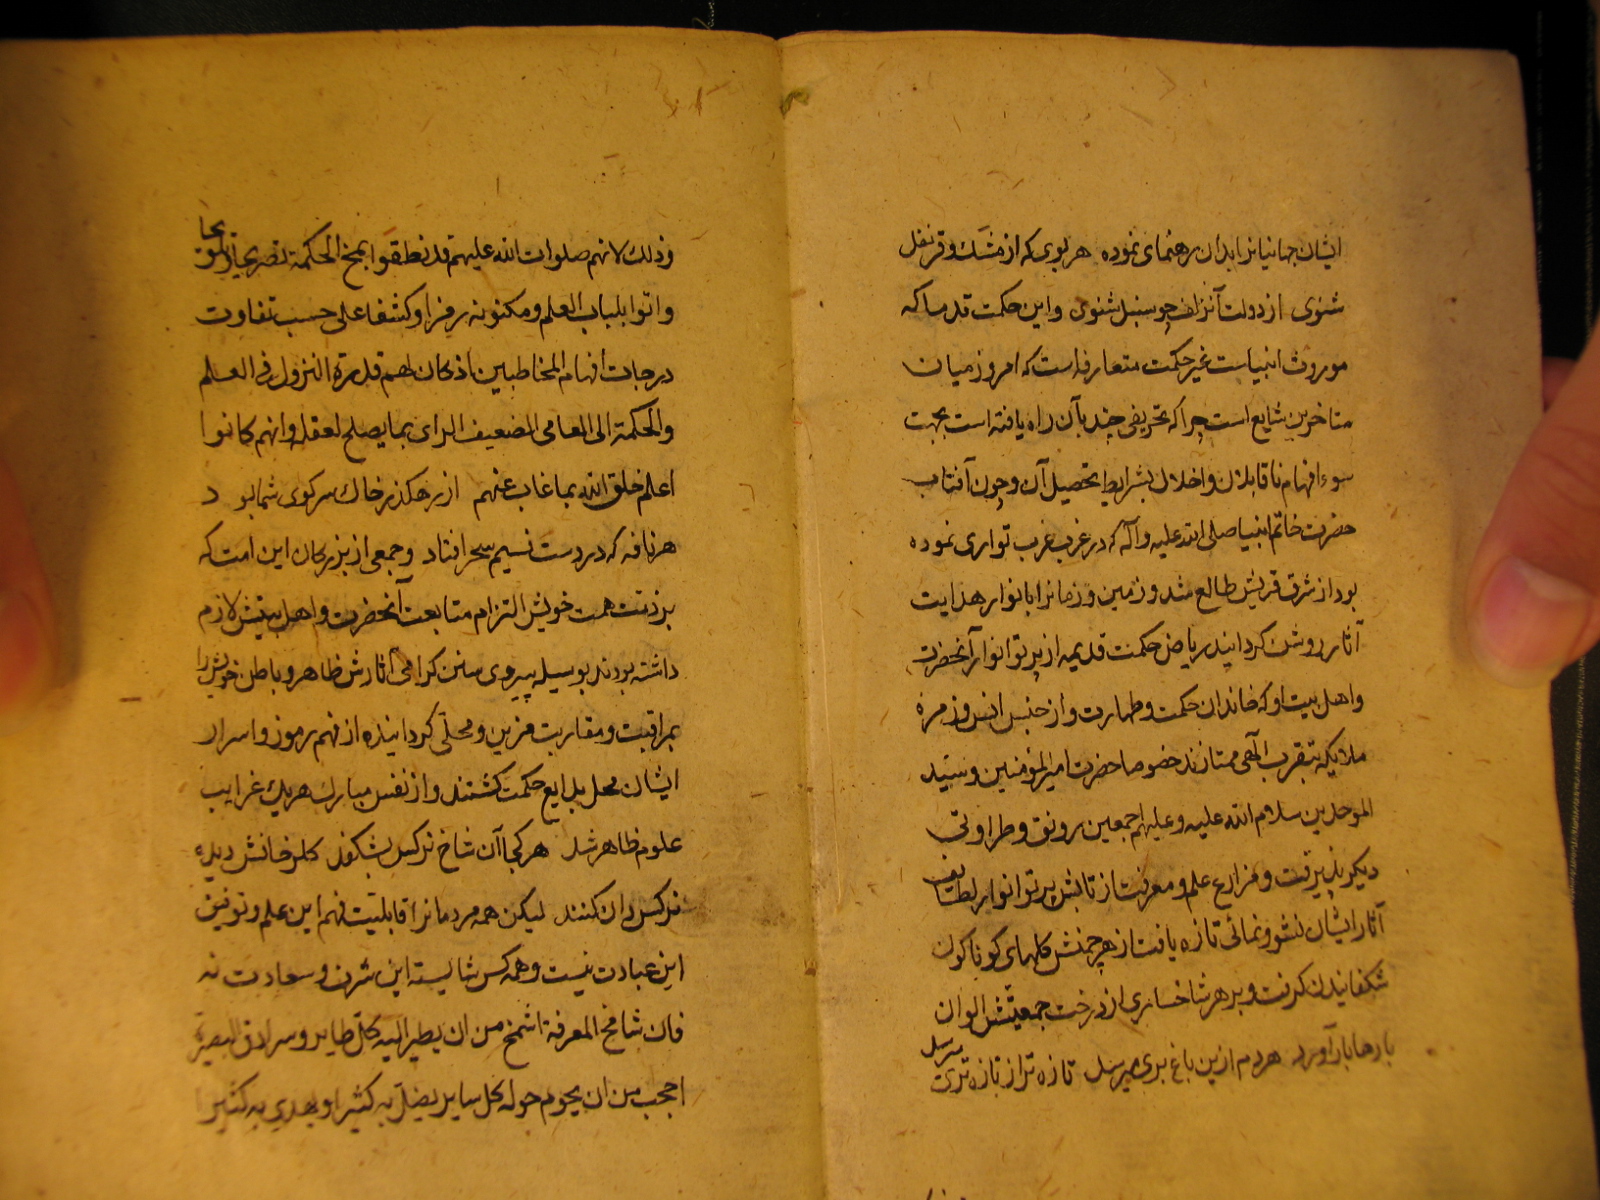 ایشان جهانیانرا بدان رهنمای نموده هر بوی که از مشک و قرنفل
شنوی از دولت آنزلف چو سنبل شنوی و این حکمت قدما که
موروث انبیاست غیر حکمت متعارفه است که امروز میان
متاخرین شایع است چرا که تحریفی چند بآن راه یافته است بجهت
سوء افهام ناقابلان و اخلال بشرایط تحصیل آن و چون آفتاب
حضرت خاتم انبیا صلی الله علیه و آله که در غرب غرب تواری نموده
بود از شرق قریش طالع شد و زمین و زمانرا بانوار هدایت
آثار روشن کردانید ریاض حکمت قدیمه از پرتو انوار آنحضرت
و اهل بیت او که خاندان حکمت و طهارت و از جنس انس و زمره
ملایکه بتقرب الهی ممتازند خصوصا حضرت امیر المؤمنین و سید
الموحدین سلام الله علیه و علیهم اجمعین رونق و طراوتی
دیکر پذیرفت و مزارع علم و معرفت از تابش پرتو انوار لطایف
آثار ایشان نشو و نمائی تازه یافت از هر چمنش کلهای کوناکون
شکفانیدن کرفت و بر هر شاخساری از درخت جمعیتش الوان
بارها بار آورد هر دم ازین باغ بری میرسد تازه تر از تازه تری میرسد
و ذلک لانهم صلوات الله علیهم قد نطقوا بمخ الحکمة تصریحا و تلویحا
و اتوا بلباب العلم و مکنونه رمزا و کشفا علی حسب تفاوت
درجات افهام المخاطبین اذ کان لهم قدرة النزول فی العلم
و الحکمة الی العامی الضعیف الرای بما یصلح لعقله و انهم کانوا
اعلم خلق الله بما غاب عنهم از رهکذر خاک سر کوی شما بود
هر نافه که در دست نسیم سحر افتاد و جمعی از بزرکان این امت که
بر ذمت همت خویش التزام متابعت آنحضرت و اهل بیتش لازم
داشته بودند بوسیله پیروی سنن کرامی آثارش ظاهر و باطن خویش را
بمراقبت و مقاربت مزین و محلی کردانیده از فهم رموز و اسرار
ایشان محل بدایع حکمت کشتند و از نفس مبارک هر یک غرایب
علوم ظاهر شد هر کجا آن شاخ نرکس بشکفد کلرخانش دیده
نرکس دان کنند لیکن همه مردمانرا قابلیت فهم این علم و توفیق
این عبادت نیست و همه کس شایسته این شرف و سعادت نه
فان شامخ المعرفة اشمخ من ان یطیر الیه کل طایر و سرادق البصیرة
احجب من ان یحوم حوله کل سایر یضل به کثیرا و یهدی به کثیرا